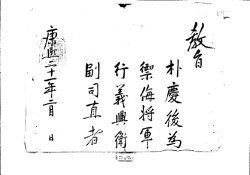 教旨
朴慶後為
禦侮將軍
行義興衛
副司直者
康熙二十一年二月 日